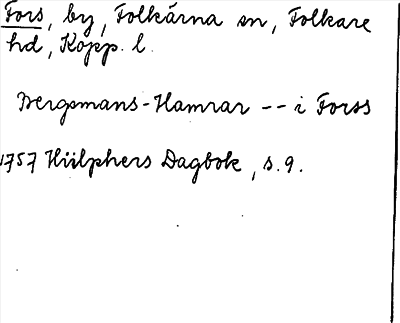 Fors, by, Folkärna sn, Folkare
hd, Kopp. l.
Bergsmans-Hamrar -- i Forss
1757 Hülphers Dagbok, s. 9.